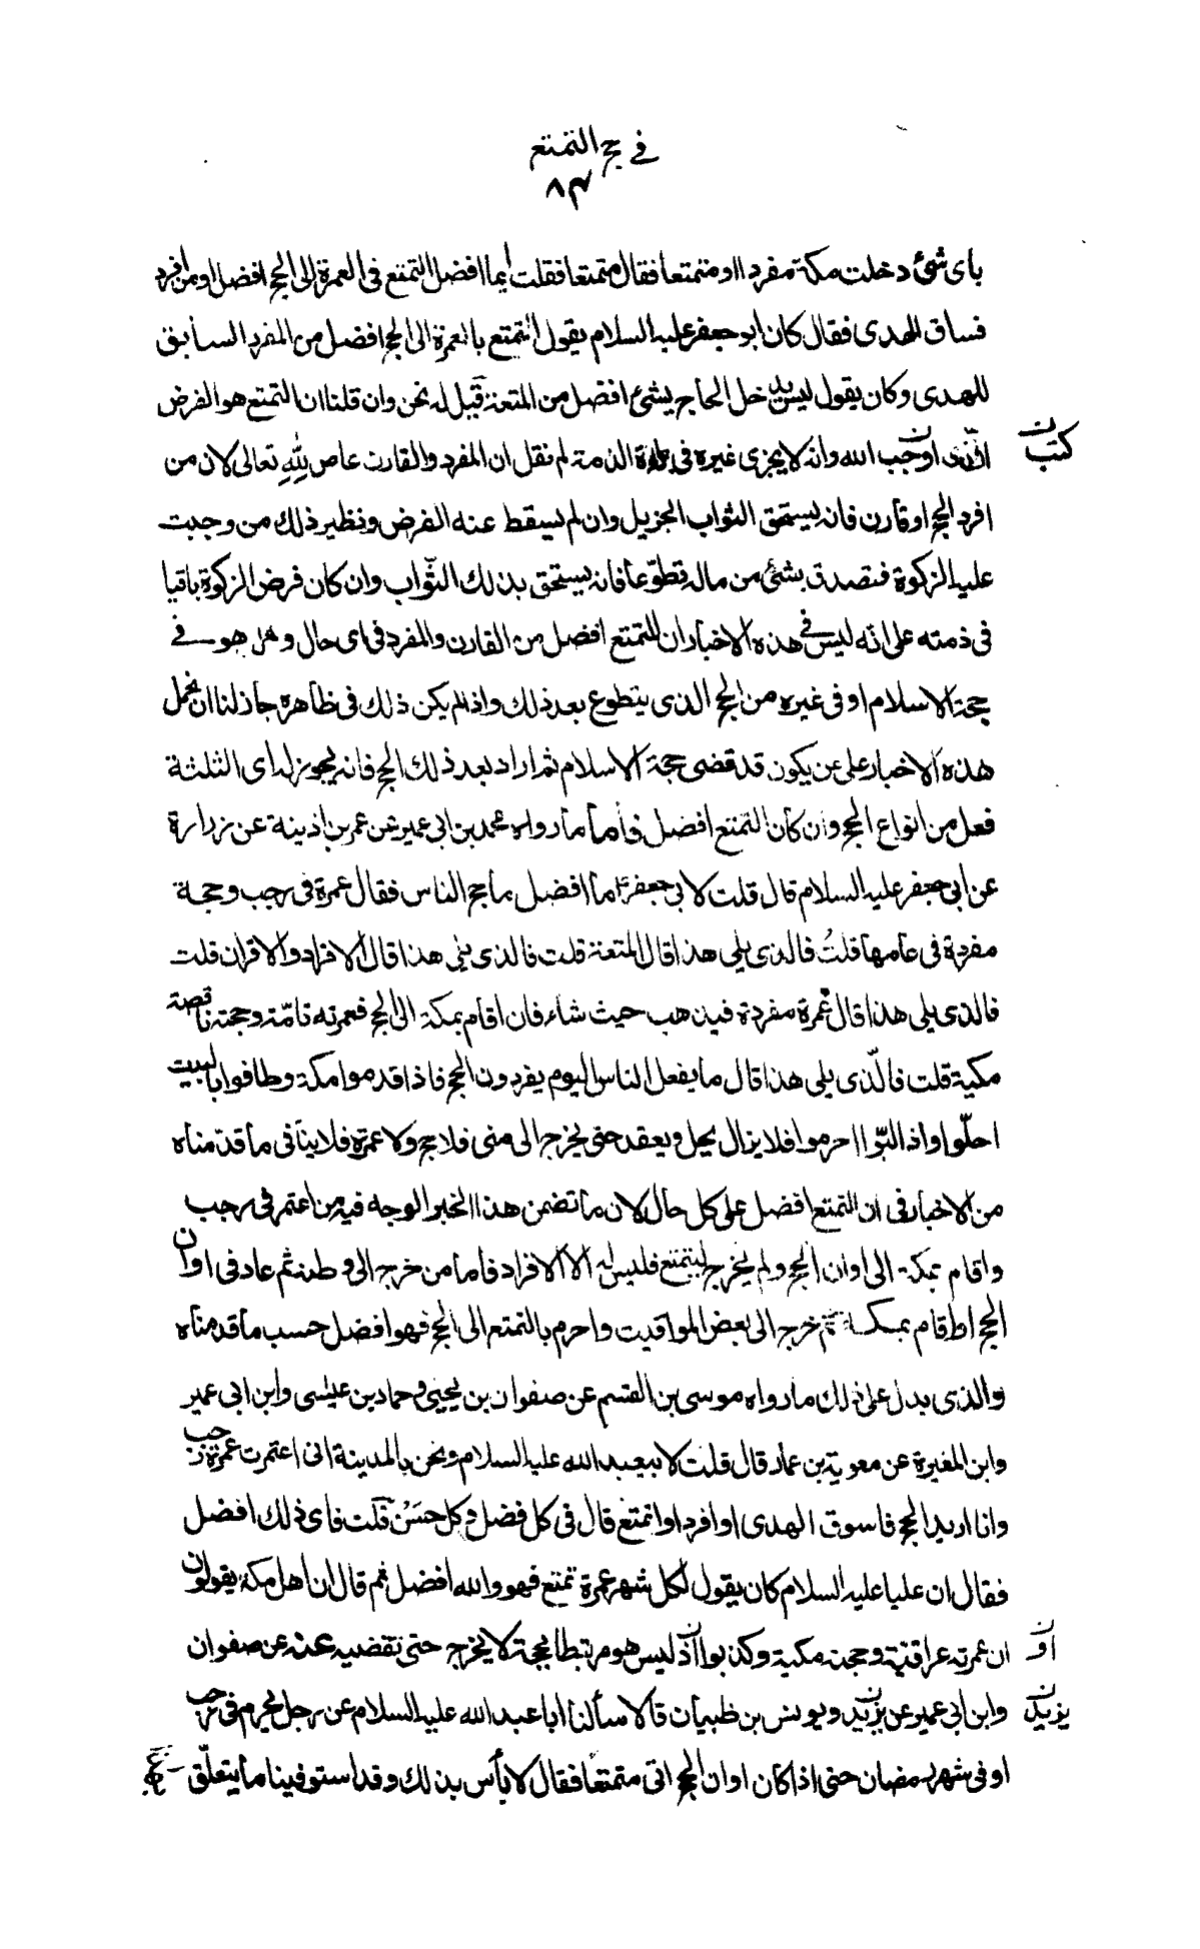 في حج التمتع
٨٣
باى شئ دخلت مكة مفردا او متمتعا فقال متمتعا فقلت ايما افضل التمتع فى العمرة الى الحج افضل او من افرد
فساق الهدى فقال كان ابو جعفر عليه السلام يقول التمتع بالعمرة الى الحج افضل من المفرد السابق
للهدى وكان يقول ليس يدخل الحاج بشئ افضل من المتعة قيل له نحن وان قلنا ان التمتع هو الفرض
الذى اوجب الله وانه لا يجزى غيره فى براءة الذمة لم نقل ان المفرد والقارن عاص لله تعالى لان من
كتب ن
افرد الحج او قارن فانه يستحق الثواب الجزيل وان لم يسقط عنه الفرض ونظير ذلك من وجبت
عليه الزكوة فتصدق بشئ من ماله تطوّعا فانه يستحق بذلك الثّواب وان كان فرض الزكوة باقيا
فى ذمته على انّه ليس فى هذه الاخبار ان المتمتع افضل من القارن والمفرد فى اى حال وهل هو فى
حجة الاسلام او فى غيره من الحج الذى يتطوع بعد ذلك واذا لم يكن ذلك فى ظاهره جاز لنا ان نحمل
هذه الاخبار على من يكون قد قضى حجة الاسلام ثم اراد بعد ذلك الحج فانه يجوز له اى الثلثة
فعل من انواع الحج وان كان التمتع افضل فاما ما رواه محمد بن ابى عمير عن عمر بن اذينة عن زرارة
عن ابى جعفر عليه السلام قال قلت لابى جعفر ع ما افضل ما حج الناس فقال عمرة فى رجب وحجة
مفردة فى عامها قلتُ فالذى يلى هذا قال المتعة قلت فالذى يلى هذا قال الافراد والاقران قلت
فالذى يلى هذا قال عمرة مفردة فيذهب حيث شاء فان اقام بمكة الى الحج فعمرته تامّة وحجته ناقصة
مكية قلت فالّذى يلى هذا قال ما يفعل الناس اليوم يفردون الحج فاذا قدموا مكة وطافوا بالبيت
احلّوا واذا لبّوا احرموا فلا يزال يحل ويعقد حتى يخرج الى منى فلا حج ولا عمرة فلا ينافى ما قدمناه
من الاخبار فى ان التمتع افضل على كل حال لان ما تضمن هذا الخبر الوجه فيه من اعتمر فى رجب
واقام بمكة الى اوان الحج ولم يخرج ليتمتع فليس له الا الافراد فاما من خرج الى وطنه ثم عاد فى اوان
الحج او اقام بمكة ثم خرج الى بعض المواقيت واحرم بالتمتع الى الحج فهو افضل حسب ما قدمناه
والذى يدل على ذلك ما رواه موسى بن القسم عن صفوان بن يحيى وحماد بن عيسى وابن ابى عمير
وابن المغيرة عن معوية بن عمار قال قلت لابيعبد الله عليه السلام ونحن بالمدينة انى اعتمرت عمرة رجب
وانا اريد الحج فاسوق الهدى او افرد او اتمتع قال فى كل فضل وكل حسَنُ قلت فاى ذلك افضل
فقال ان عليا عليه السلام كان يقول لكل شهر عمرة تمتع فهو والله افضل ثم قال ان اهل مكة يقولون
ان عمرته عراقية وحجته مكية وكذبوا اذ ليس هو مرتبطا بحجة لا يخرج حتى تقضيه عنه عن صفوان
او ن
وابن ابى عمير عن بريد ويونس بن ظبيان قالا سألنا ابا عبد الله عليه السلام عن رجل يحرم فى رجب
يزيد ن
او فى شهر رمضان حتى اذا كان اوان الحج اتى متمتعا فقال لا بأس بذلك وقد استوفينا ما يتعلّق